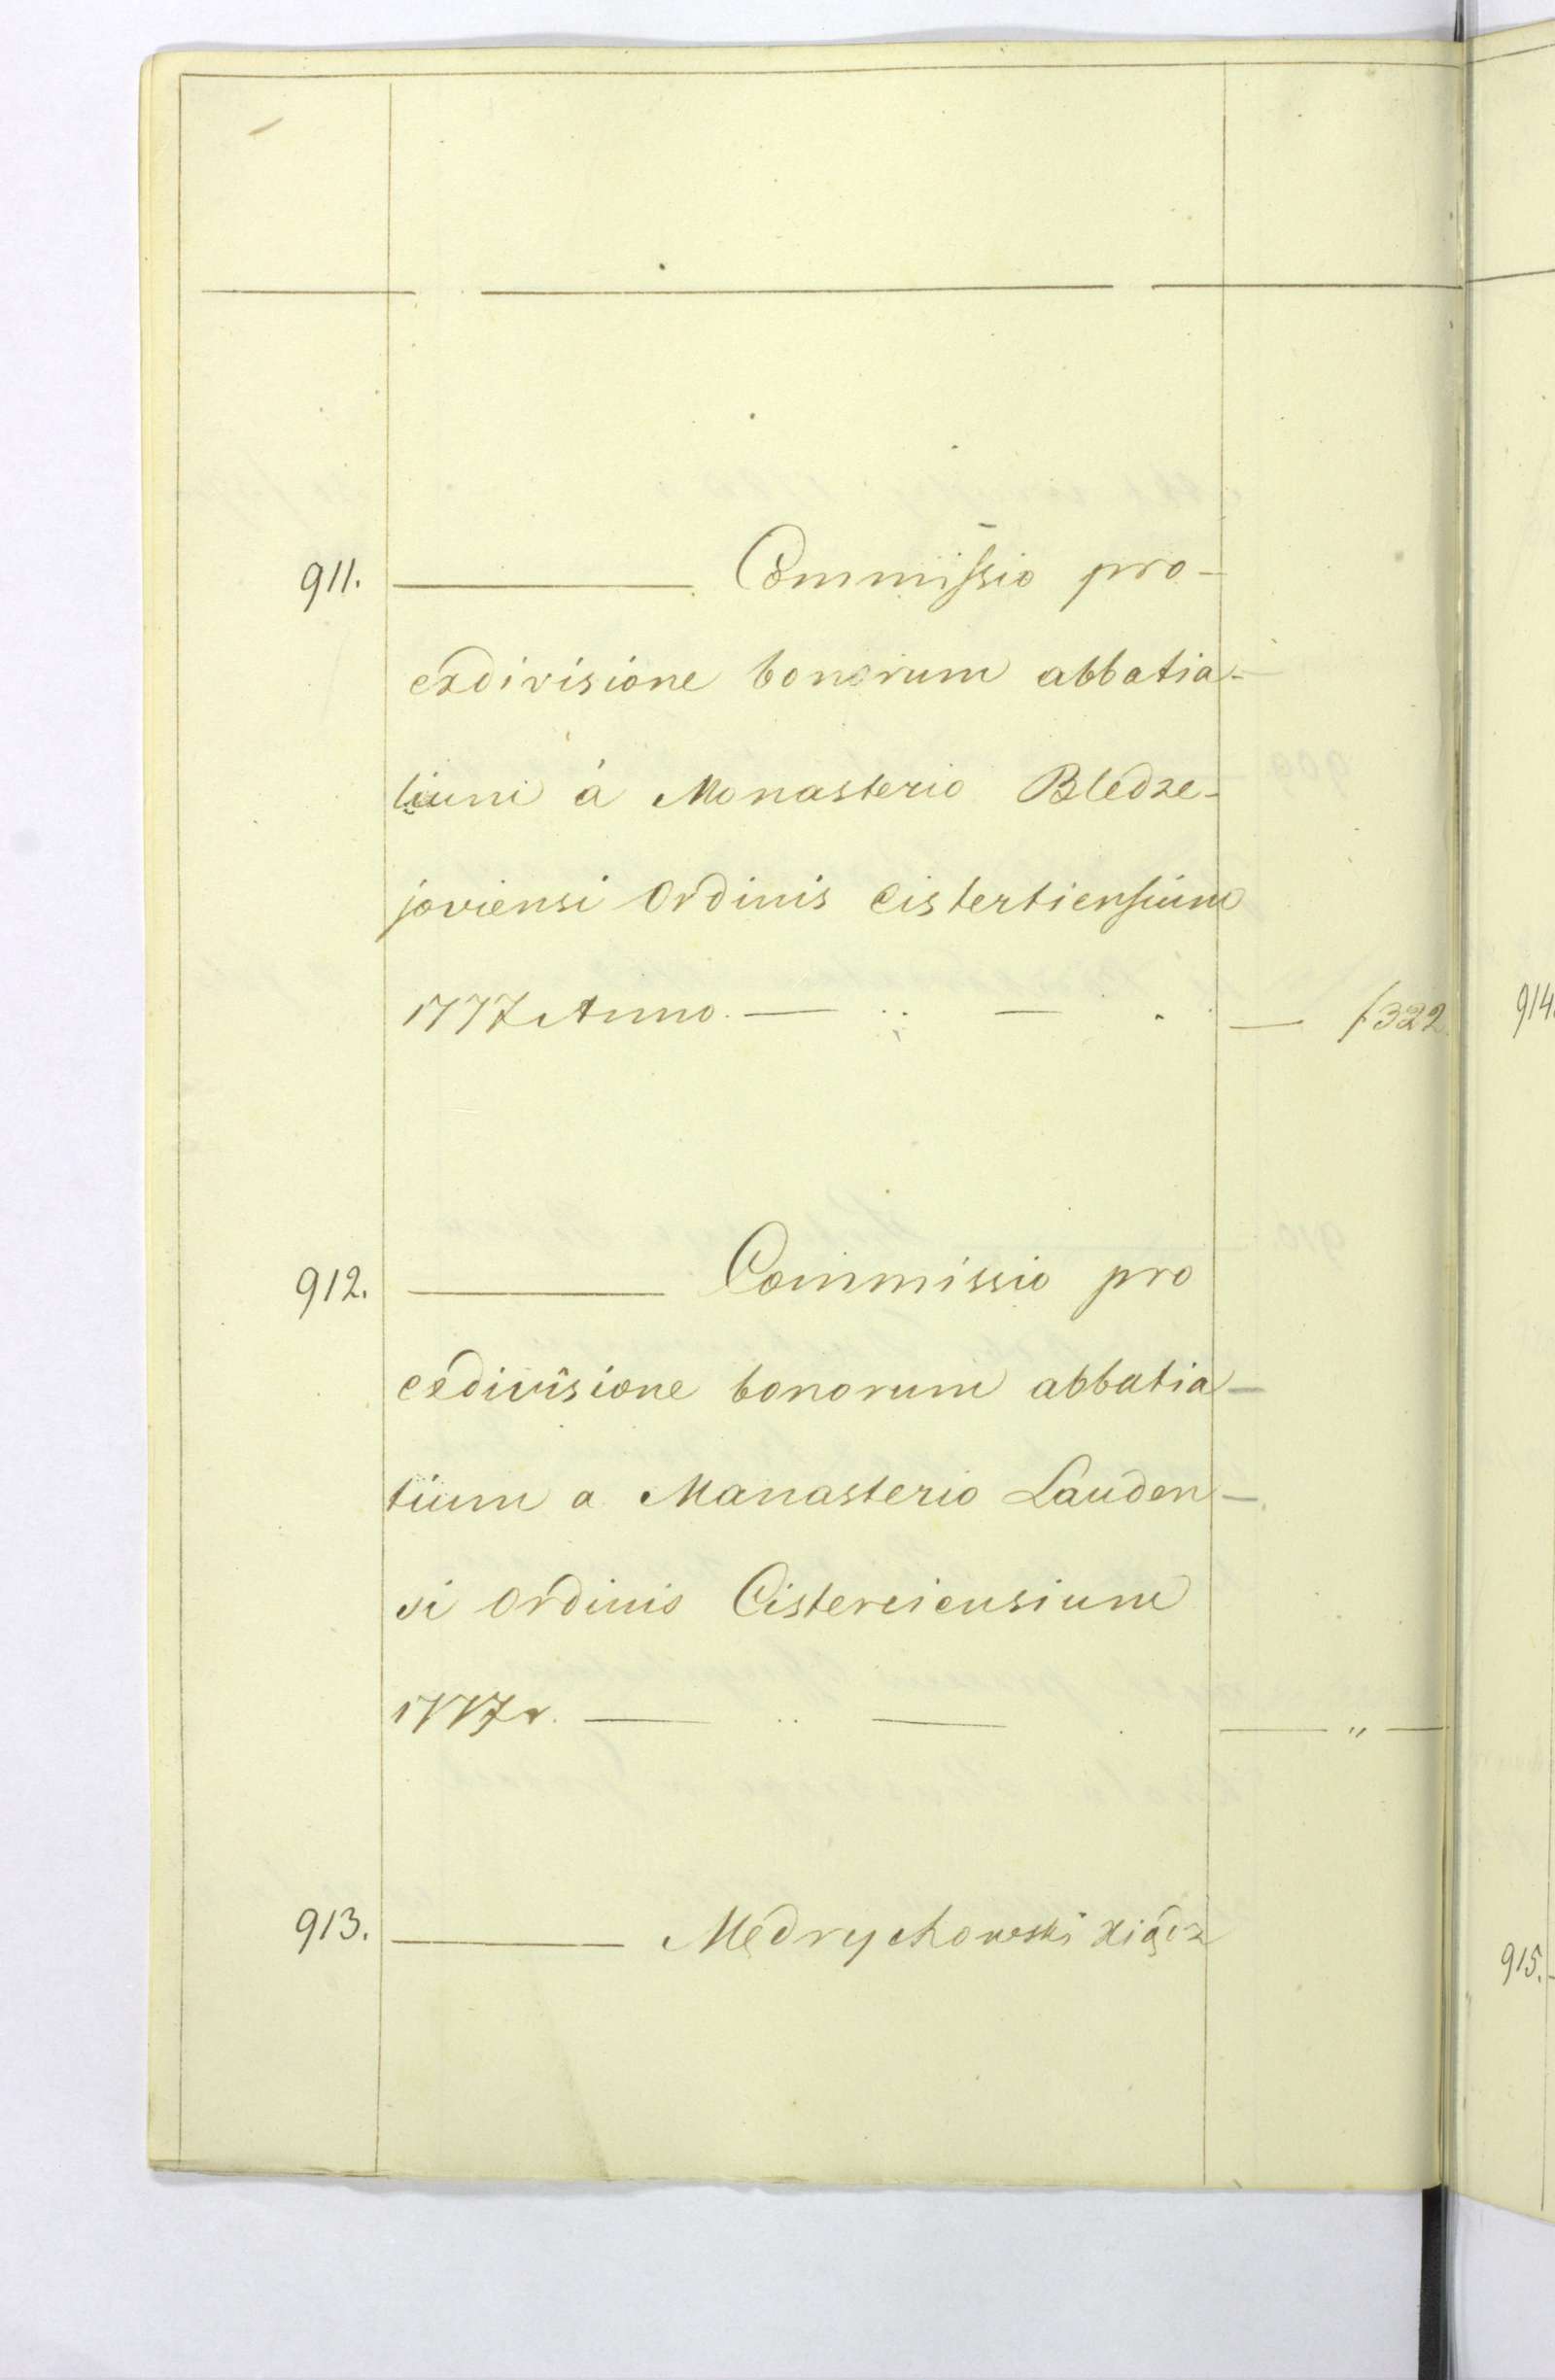 911. Commissio pro-
exdivisione bonorum abbatia-
lium à Monasterio Bledze-
joviensi Ordinis Cistertiensium
1777 Anno. — ,, — — f 322
912. Commissio pro
exdivisione bonorum abbatia-
tium a Manasterio Lauden-
si Ordinis Cisterciensium
1777 r. — ,, — — " —
913. Mędrychowski Xiądz
914.
915.